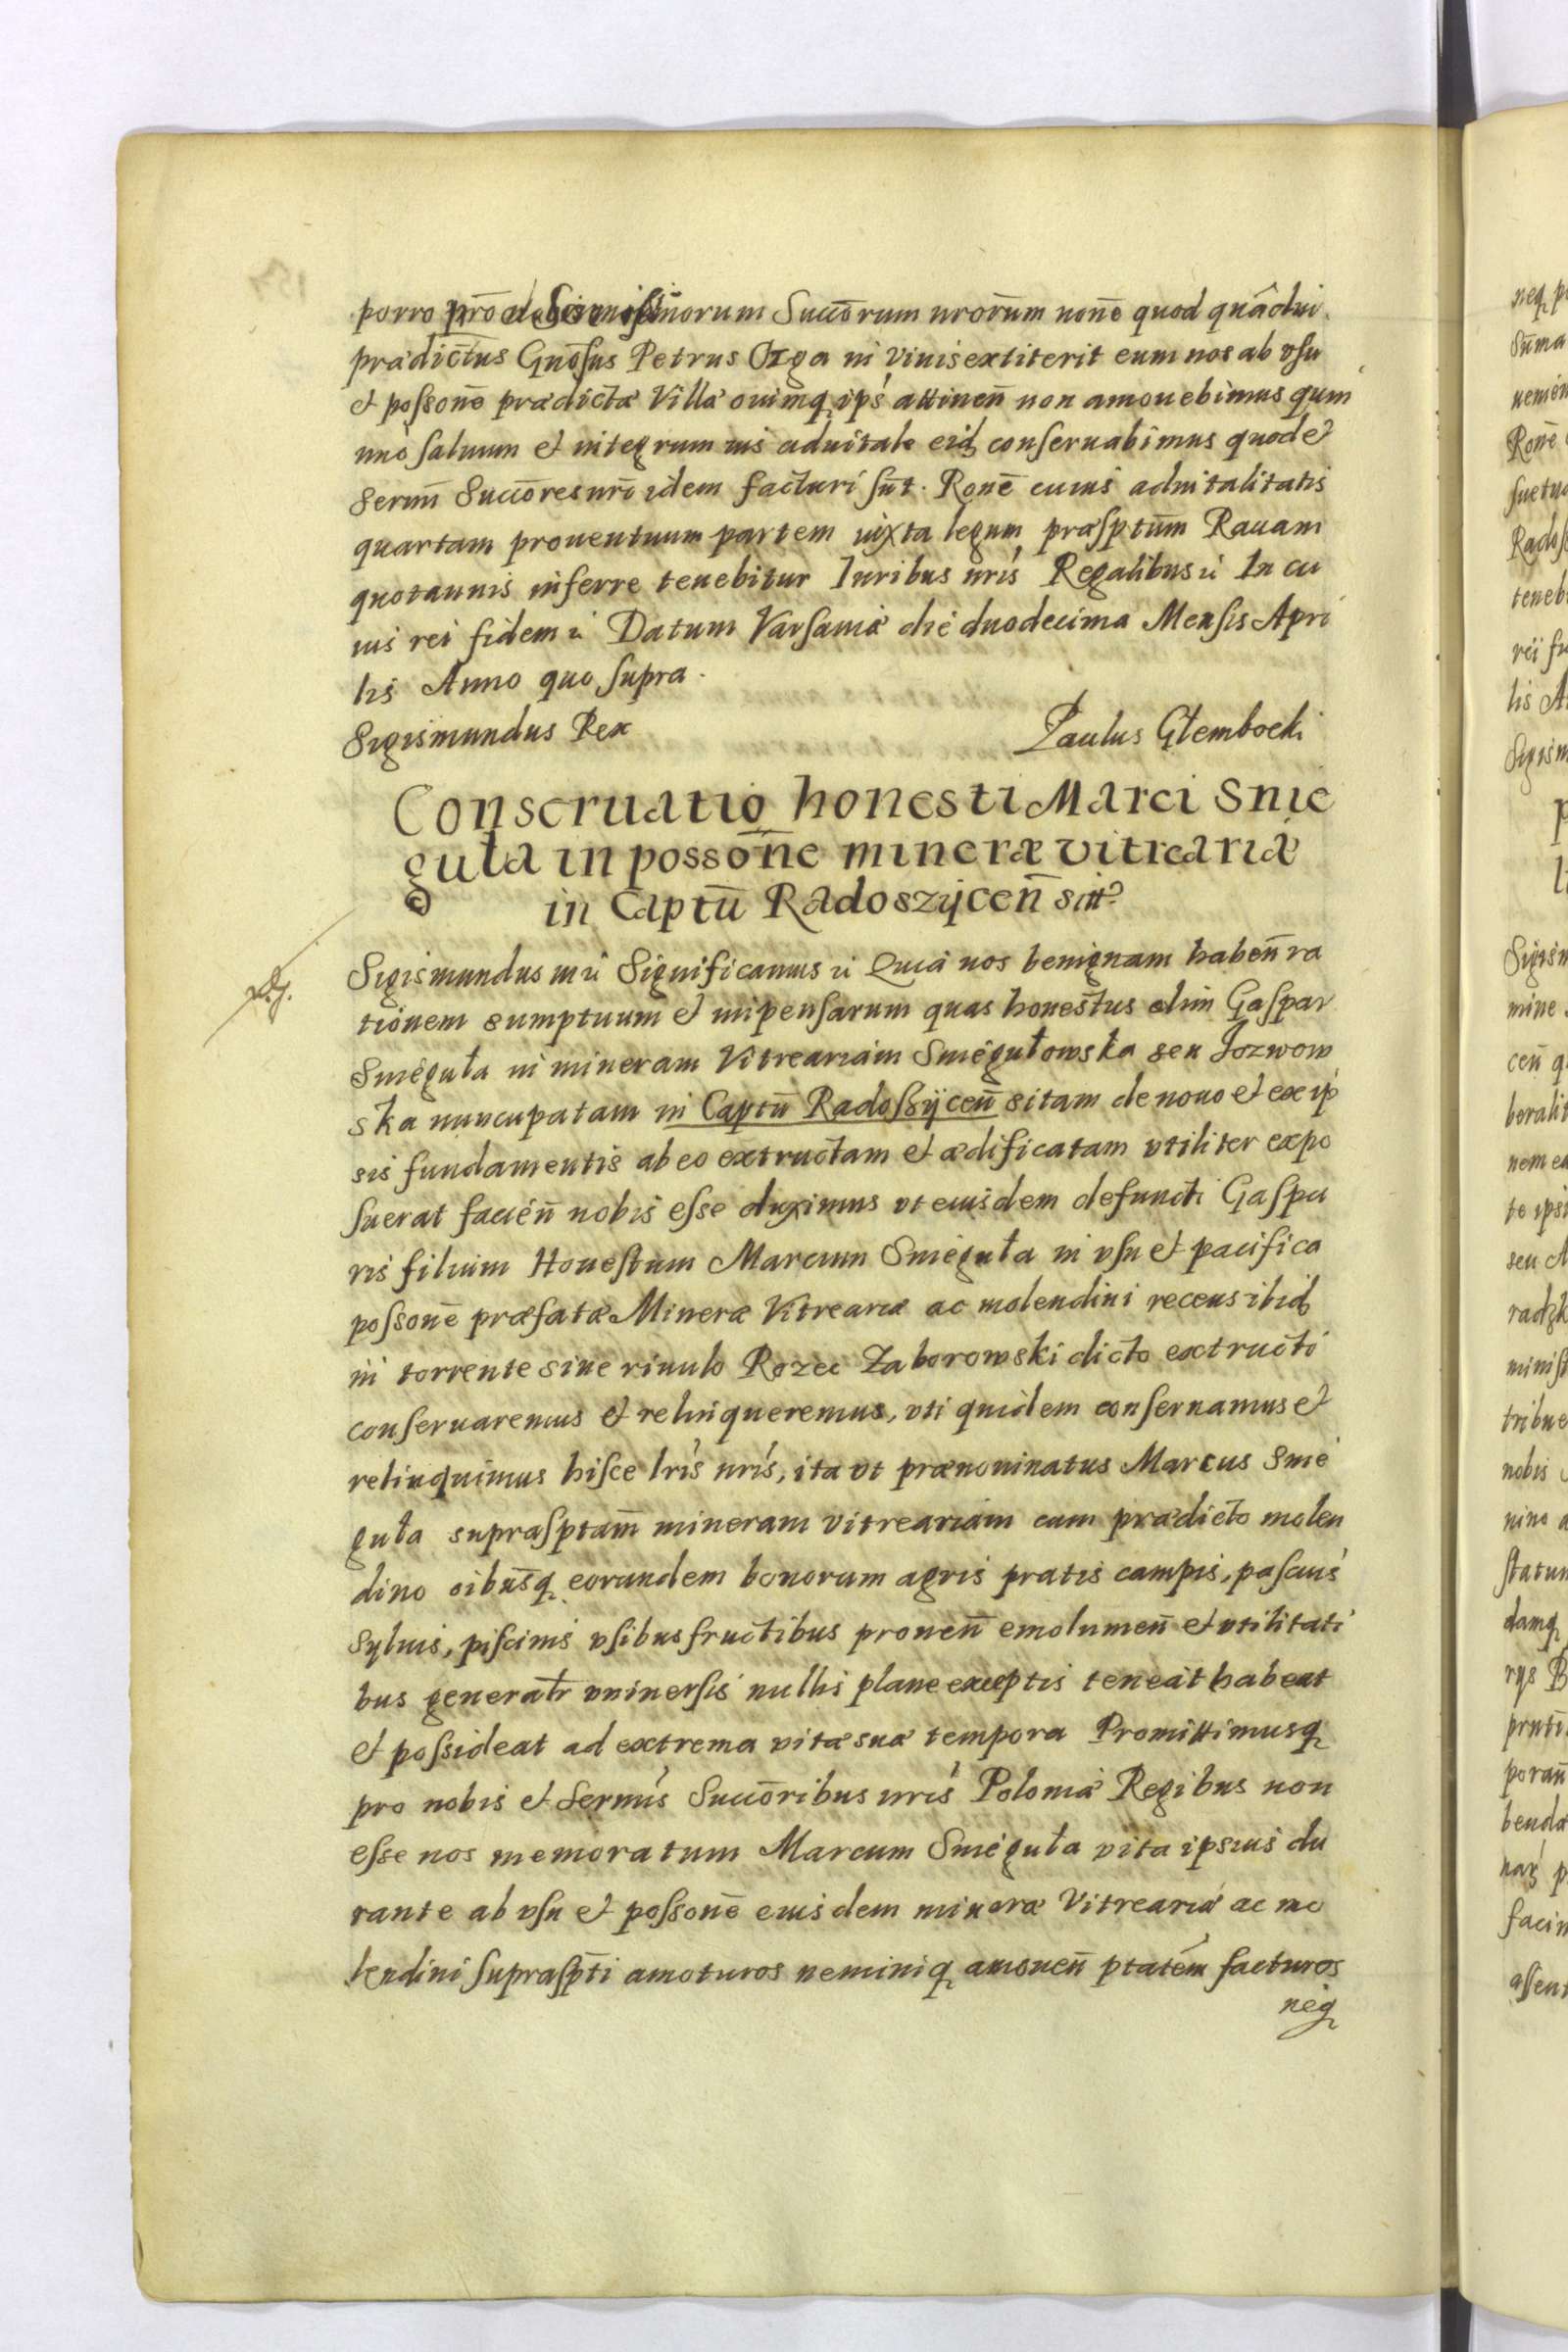 porro pro Serenissimorum Succōrum nrorūm noīe quod quādiu
prædictus Gnōsus Petrus Ozga in viuis extiterit eum nos ab vsu
et possonē prædictæ Villæ oniniq ips attinen̄ non amouebimus quini
imo saluum et integrum ius aduitale eid conseruabimus quod et
Sermi Succōres nrī idem facturi sūt. Ronē cuius aduitalitatis
quartam prouentuum partem iuxta legum præsptūm Rauam
quotannis inferre tenebitur Iuribus nris Regalibus ū In cu
ius rei fidem ū Datum Varsauiæ die duodecima Mensis Apri
lis Anno quo supra.
Sigismundus Rex
Paulus Glembocki
Conseruatio honesti Marci Snie
guła in possōne mineræ vitreariæ
in Captū Radoszÿcen̄ sitæ
Sigismundus in ū Significamus ū Quia nos benignam haben̄ ra
tionem sumptuum et impensarum quas honestus olim Gaspar
Smieguła in mineram Vitreariam Smiegułowska seu Jozwow
ska nuncupatam in Captū Radoszÿcen̄ sitam de nouo et ex ip
sis fundamentis ab eo extructam et ædificatam vtiliter expo
suerat facien̄ nobis esse duximus vt eiusdem defuncti Gaspa
ris filium Honestum Marcum Smieguła in vsu et pacifica
possonē præfatæ Mineræ Vitreariæ ac molendini recens ibid
in torrente siue riuulo Rozec Zaborowski dicto extructo
conseruaremus et relinqueremus, vti quidem conseruamus et
relinquimus hisce lris nris, ita vt prænominatus Marcus Smie
guła suprasptam̄ mineram vitreariam cum prædicto molen
dino oibusq eorundem bonorum agris pratis campis, pascuis
syluis, piscinis vsibus fructibus prouen̄ emolumen̄ et vtilitati
bus generatr vniuersis nullis plane exceptis teneat habeat
et possideat ad extrema vitæ suæ tempora Promittimusq
pro nobis et Sermis Succōribus nris Poloniæ Regibus non
esse nos memoratum Marcum Smieguła vita ipsius du
rante ab vsu et possonē eiusdem mineræ Vitreariæ ac mo
lendini suprasptī amoturos neminiq amouen̄ ptatem facturos
neq